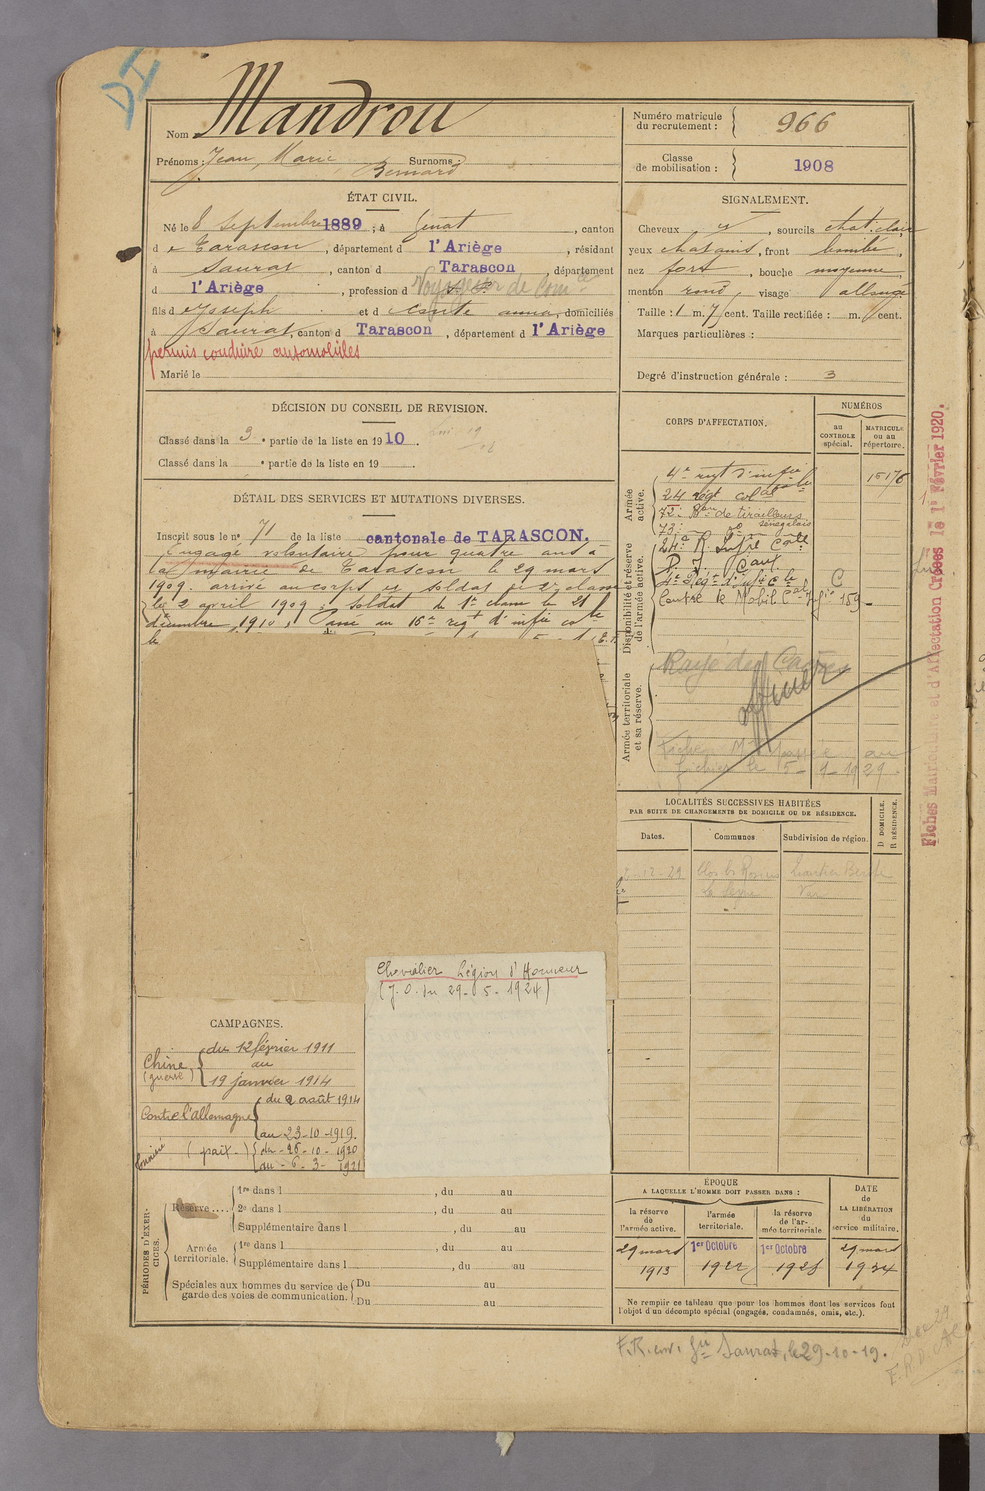 DI
Nom Mandrou
Prénoms : Jean Marie Bernard Surnoms :
Numéro matricule du recrutement : 966
Classe de mobilisation : 1908
ÉTAT CIVIL.
Né le 8 Septembre 1889, à Génat, canton
de Tarascon, département d l'Ariège, résidant
à Saurat, canton d Tarascon, département
d l'Ariège, profession d Voyageur de Comce
fils d Joseph et d anna, domiciliés
à Saurat, canton d Tarascon, département d l'Ariège
permis conduire automobiles
Marié le
SIGNALEMENT.
Cheveux, sourcils chat. clair
yeux chatains, front
nez fort, bouche moyenne,
menton rond, visage allongé
Taille : 1 m. 7 cent. Taille rectifiée : m. cent.
Marques particulières :
Degré d'instruction générale : 3
DÉCISION DU CONSEIL DE REVISION.
Classé dans la 3e partie de la liste en 1910.
Classé dans la e partie de la liste en 19
DÉTAIL DES SERVICES ET MUTATIONS DIVERSES.
Inscrit sous le n° 71 de la liste cantonale de TARASCON.
Engagé volontaire pour quatre ans à
la mairie de Tarascon le 29 mars
1909. arrivé au corps et soldat de 2e classe
le 2 avril 1909. Soldat de 1e classe le 21
décembre 1910. Passé au 16e regt d'infie cole
le
CORPS D'AFFECTATION.
NUMÉROS
au CONTROLE spécial.
MATRICULE ou au répertoire.
Armée active.
4e regt d'infie cole
24 regt colal
72e Bon de tirailleurs
73e do sénégalais
15176
Disponibilité et réserve de l'armée active.
24e R. Infie Cole
4e Rég. d'infie cle C
Centre de Mobil. Cal 159
Armée territoriale et sa réserve.
Rayé des Cadres
Fiche Mle passée au
fichier le 5-9-1929.
Fiches Matricule et d'Affectation Créées le 1er Février 1920.
LOCALITÉS SUCCESSIVES HABITÉES
PAR SUITE DE CHANGEMENTS DE DOMICILE OU DE RÉSIDENCE.
Dates. Communes Subdivision de région. D DOMICILE. R RÉSIDENCE.
12-29 Clos des Roses Quartier
La Seyne Var
Chevalier Légion d'Honneur
(J.O. du 29-5-1924)
CAMPAGNES.
Chine (guerre) du 12 février 1911
au
19 janvier 1914
Contre l'allemagne du 2 août 1914
au 23-10-1919.
(paix.) du - 26-10-1920
au - 6-3- 1921
PÉRIODES D'EXERCICES.
Réserve.... 1re dans l , du au
2e dans l , du au
Supplémentaire dans l , du au
Armée territoriale. 1re dans l , du au
Supplémentaire dans l , du au
Spéciales aux hommes du service de garde des voies de communication. Du au
Du au
ÉPOQUE
A LAQUELLE L'HOMME DOIT PASSER DANS :
la réserve de l'armée active.
l'armée territoriale.
la réserve de l'armée territoriale
DATE DE LA LIBÉRATION du service militaire.
29 mars 1913
1er Octobre 1922
1er Octobre 1928
29 mars 1934
Ne remplir ce tableau que pour les hommes dont les services font
l'objet d'un décompte spécial (engagés, condamnés, omis, etc.).
F.R. env. Gie Saurat, le 29-10-19.